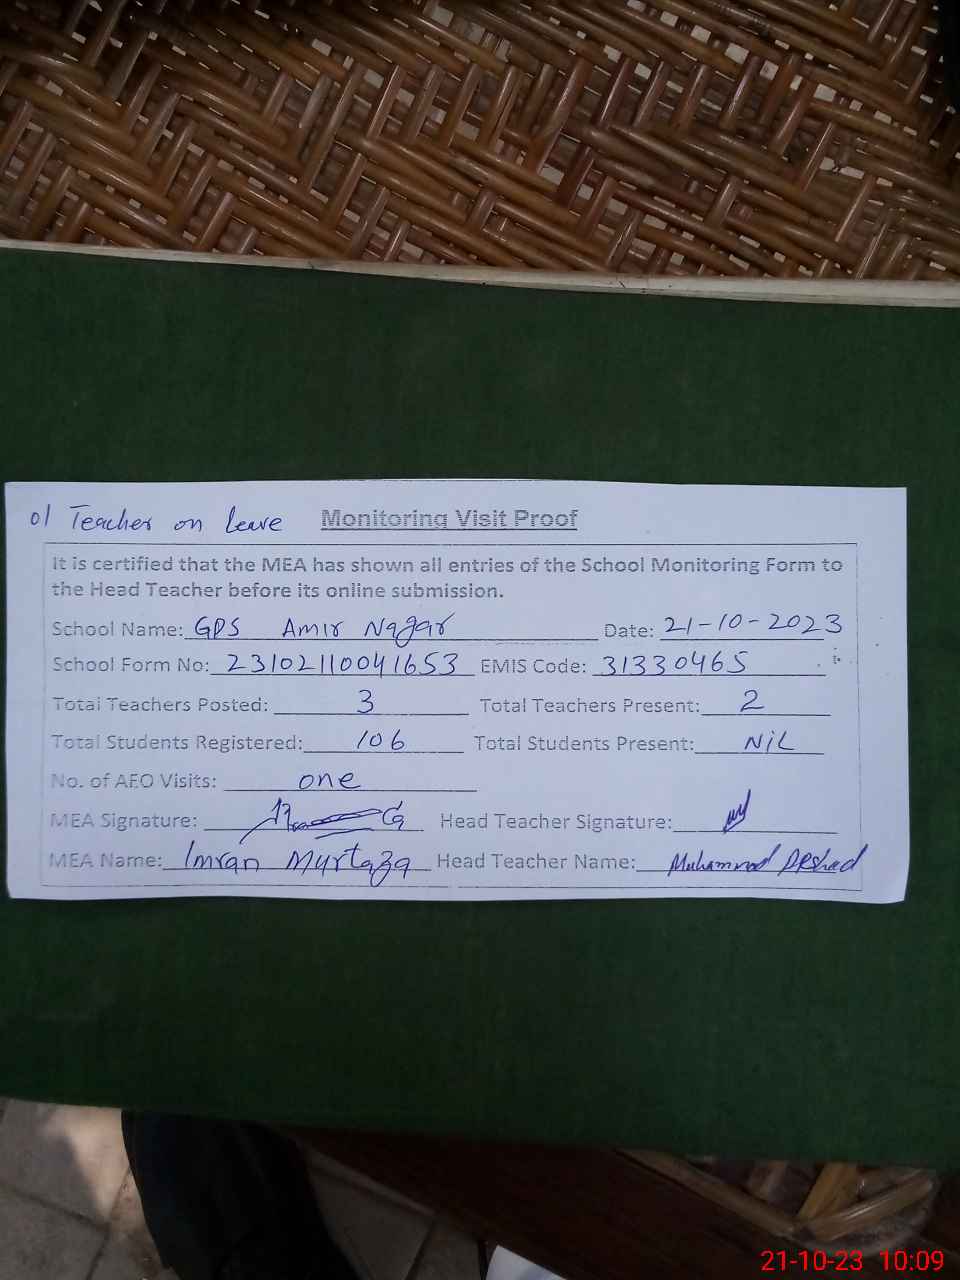 01 Teacher on leave Monitoring Visit Proof
It is certified that the MEA has shown all entries of the School Monitoring Form to
the Head Teacher before its online submission.
School Name: GPS Amir Nagar Date: 21-10-2023
School Form No: 23102110041653 EMIS Code: 31330465
Total Teachers Posted: 3 Total Teachers Present: 2
Total Students Registered: 106 Total Students Present: NiL
No. of AEO Visits: one
MEA Signature: Head Teacher Signature:
MEA Name: Imran Murtaza Head Teacher Name: Muhammad Arshad
21-10-23 10:09